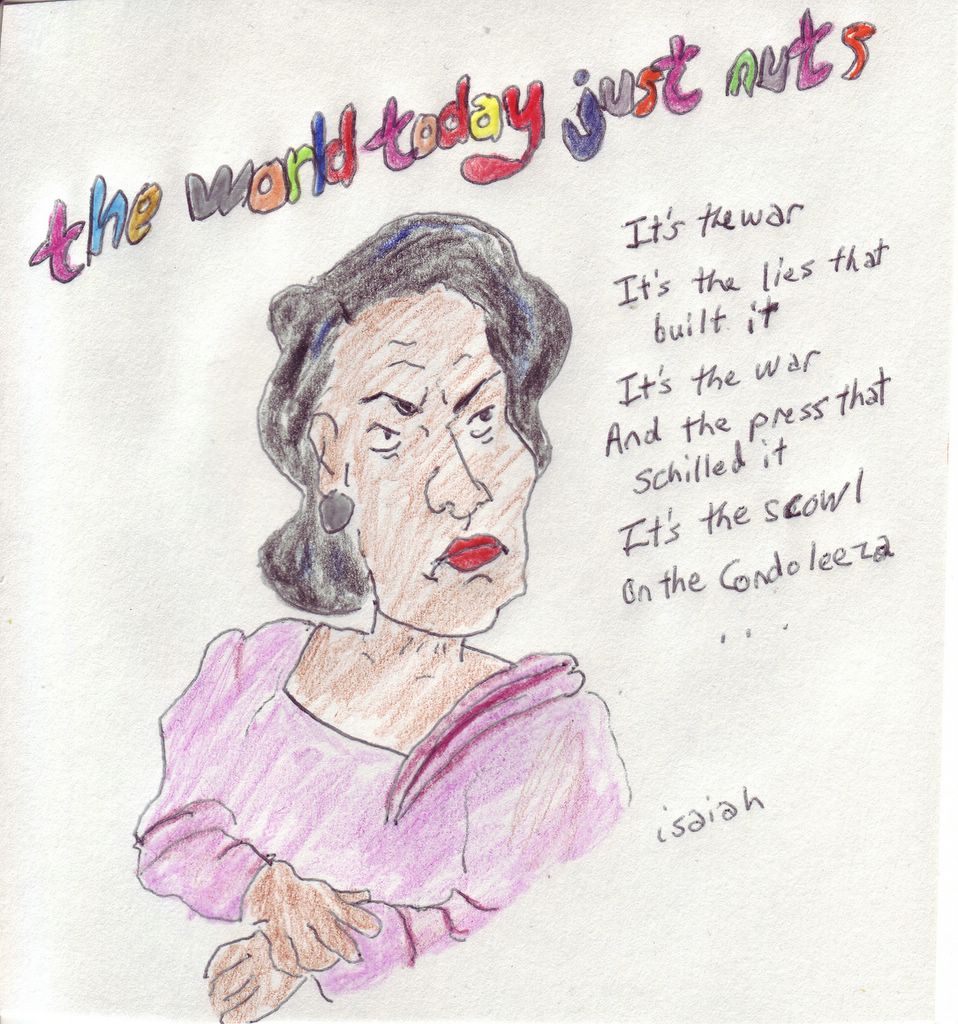 the world today just nuts
It's the war
It's the lies that
built it
It's the war
And the press that
schilled it
It's the scowl
On the Condoleeza
....
isaiah